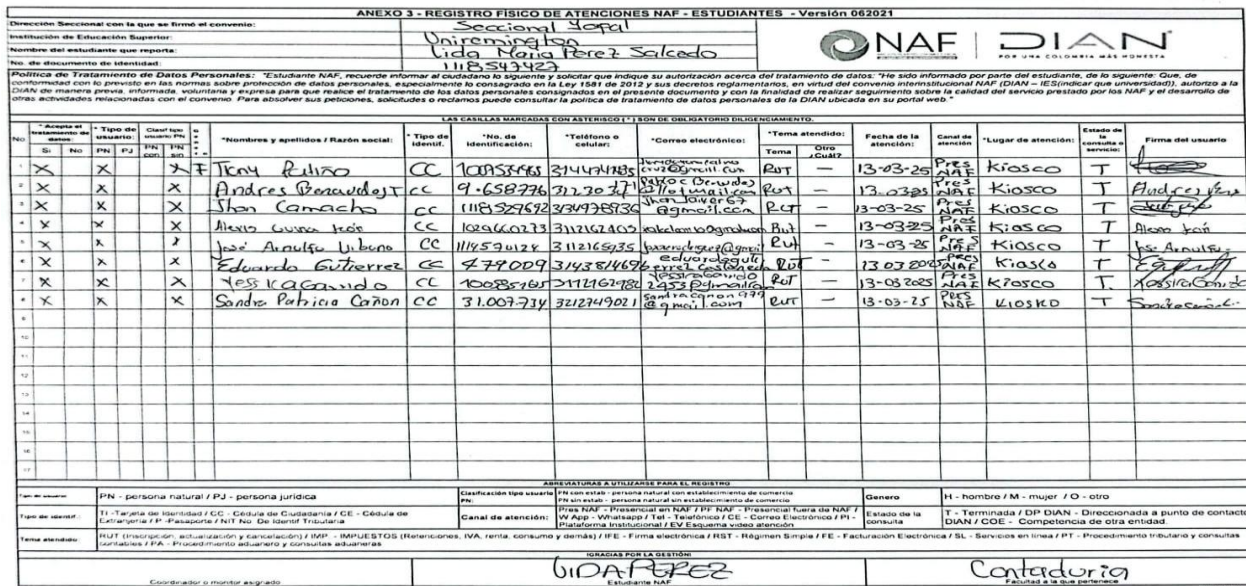 ANEXO 3 - REGISTRO FÍSICO DE ATENCIONES NAF - ESTUDIANTES - Versión 062021
Dirección Seccional con la que se firmó el convenio: Seccional Yopal
Institución de Educación Superior: Uniremington
Nombre del estudiante que reporta: Lida Maria Perez Salcedo
No. de documento de identidad: 1118547427
NAF | DIAN
POR UNA COLOMBIA MÁS HONESTA
Política de Tratamiento de Datos Personales: "Estudiante NAF, recuerde informar al ciudadano lo siguiente y solicitar que indique su autorización acerca del tratamiento de datos: "He sido informado por parte del estudiante, de lo siguiente: Que, de
conformidad con lo previsto en las normas sobre protección de datos personales, especialmente lo consagrado en la Ley 1581 de 2012 y sus decretos reglamentarios, en virtud del convenio interinstitucional NAF (DIAN – IES(indicar que universidad)), autorizo a la
DIAN de manera previa, informada, voluntaria y expresa para que realice el tratamiento de los datos personales consignados en el presente documento y con la finalidad de realizar seguimiento sobre la calidad del servicio prestado por los NAF y el desarrollo de
otras actividades relacionadas con el convenio. Para absolver sus peticiones, solicitudes o reclamos puede consultar la política de tratamiento de datos personales de la DIAN ubicada en su portal web."
LAS CASILLAS MARCADAS CON ASTERISCO (*) SON DE OBLIGATORIO DILIGENCIAMIENTO.
No * Acepta el tratamiento de datos: Si No * Tipo de usuario: PN PJ Clasif tipo usuario PN PN con PN sin *Nombres y apellidos / Razón social: * Tipo de identif. *No. de identificación: *Teléfono o celular: *Correo electrónico: *Tema atendido: Tema Otro ¿Cuál? Fecha de la atención: Canal de atención *Lugar de atención: Estado de la consulta o servicio: Firma del usuario
1 X X X CC RUT — 13-03-25 Pres NAF Kiosco T
2 X X X Andres CC 9.658776 RUT — 13-03-25 Pres NAF Kiosco T Andres
3 X X X Jhon Camacho CC 1118529692 3134978936 @gmail.com RUT — 13-03-25 Pres NAF Kiosco T
4 X X X Alexis CC 1029660273 3112162405 Rut — 13-03-25 Pres NAF Kiosco T
5 X X X José Arnulfo Urbano CC 1114570124 3112165935 RUT — 13-03-25 Pres NAF Kiosco T José Arnulfo.
6 X X X Eduardo Gutierrez CC 479009 3143814696 RUT — 13 03 2025 Pres NAF Kiosko T
7 X X X Yessica Garrido CC 3112162982 RUT — 13-03 2025 Pres NAF Kiosco T.
8 X X X Sandra Patricia Cañon CC 31.007.734 3212749021 sandracanon979 @gmail.com RUT — 13-03-25 Pres NAF KIOSKO T
9
10
11
12
13
14
15
16
17
ABREVIATURAS A UTILIZARSE PARA EL REGISTRO
Tipo de usuario: PN - persona natural / PJ - persona jurídica Clasificación tipo usuario PN: PN con estab - persona natural con establecimiento de comercio
PN sin estab - persona natural sin establecimiento de comercio Genero H - hombre / M - mujer / O - otro
Tipo de identif.: TI -Tarjeta de Identidad / CC - Cédula de Ciudadanía / CE - Cédula de
Extranjería / P -Pasaporte / NIT No. De Identif Tributaria Canal de atención: Pres NAF - Presencial en NAF / PF NAF - Presencial fuera de NAF /
W App - Whatsapp / Tel - Telefónico / CE - Correo Electrónico / PI -
Plataforma Institucional / EV Esquema video atención Estado de la consulta T - Terminada / DP DIAN - Direccionada a punto de contacto
DIAN / COE - Competencia de otra entidad.
Tema atendido: RUT (Inscripción, actualización y cancelación) / IMP - IMPUESTOS (Retenciones, IVA, renta, consumo y demás) / IFE - Firma electrónica / RST - Régimen Simple / FE - Facturación Electrónica / SL - Servicios en línea / PT - Procedimiento tributario y consultas
contables / PA - Procedimiento aduanero y consultas aduaneras
!GRACIAS POR LA GESTIÓN!
LIDA PEREZ Contaduria
Coordinador o monitor asignado Estudiante NAF Facultad a la que pertenece